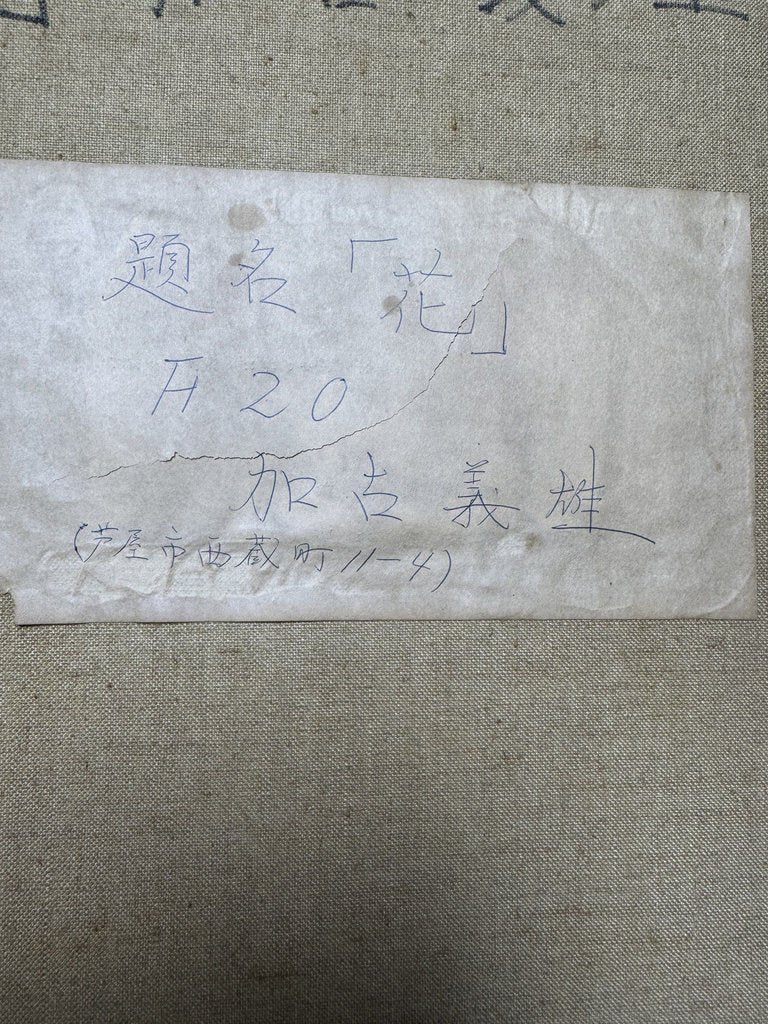 題名「花」
F20
加古義雄
(芦屋市西蔵町11-4)